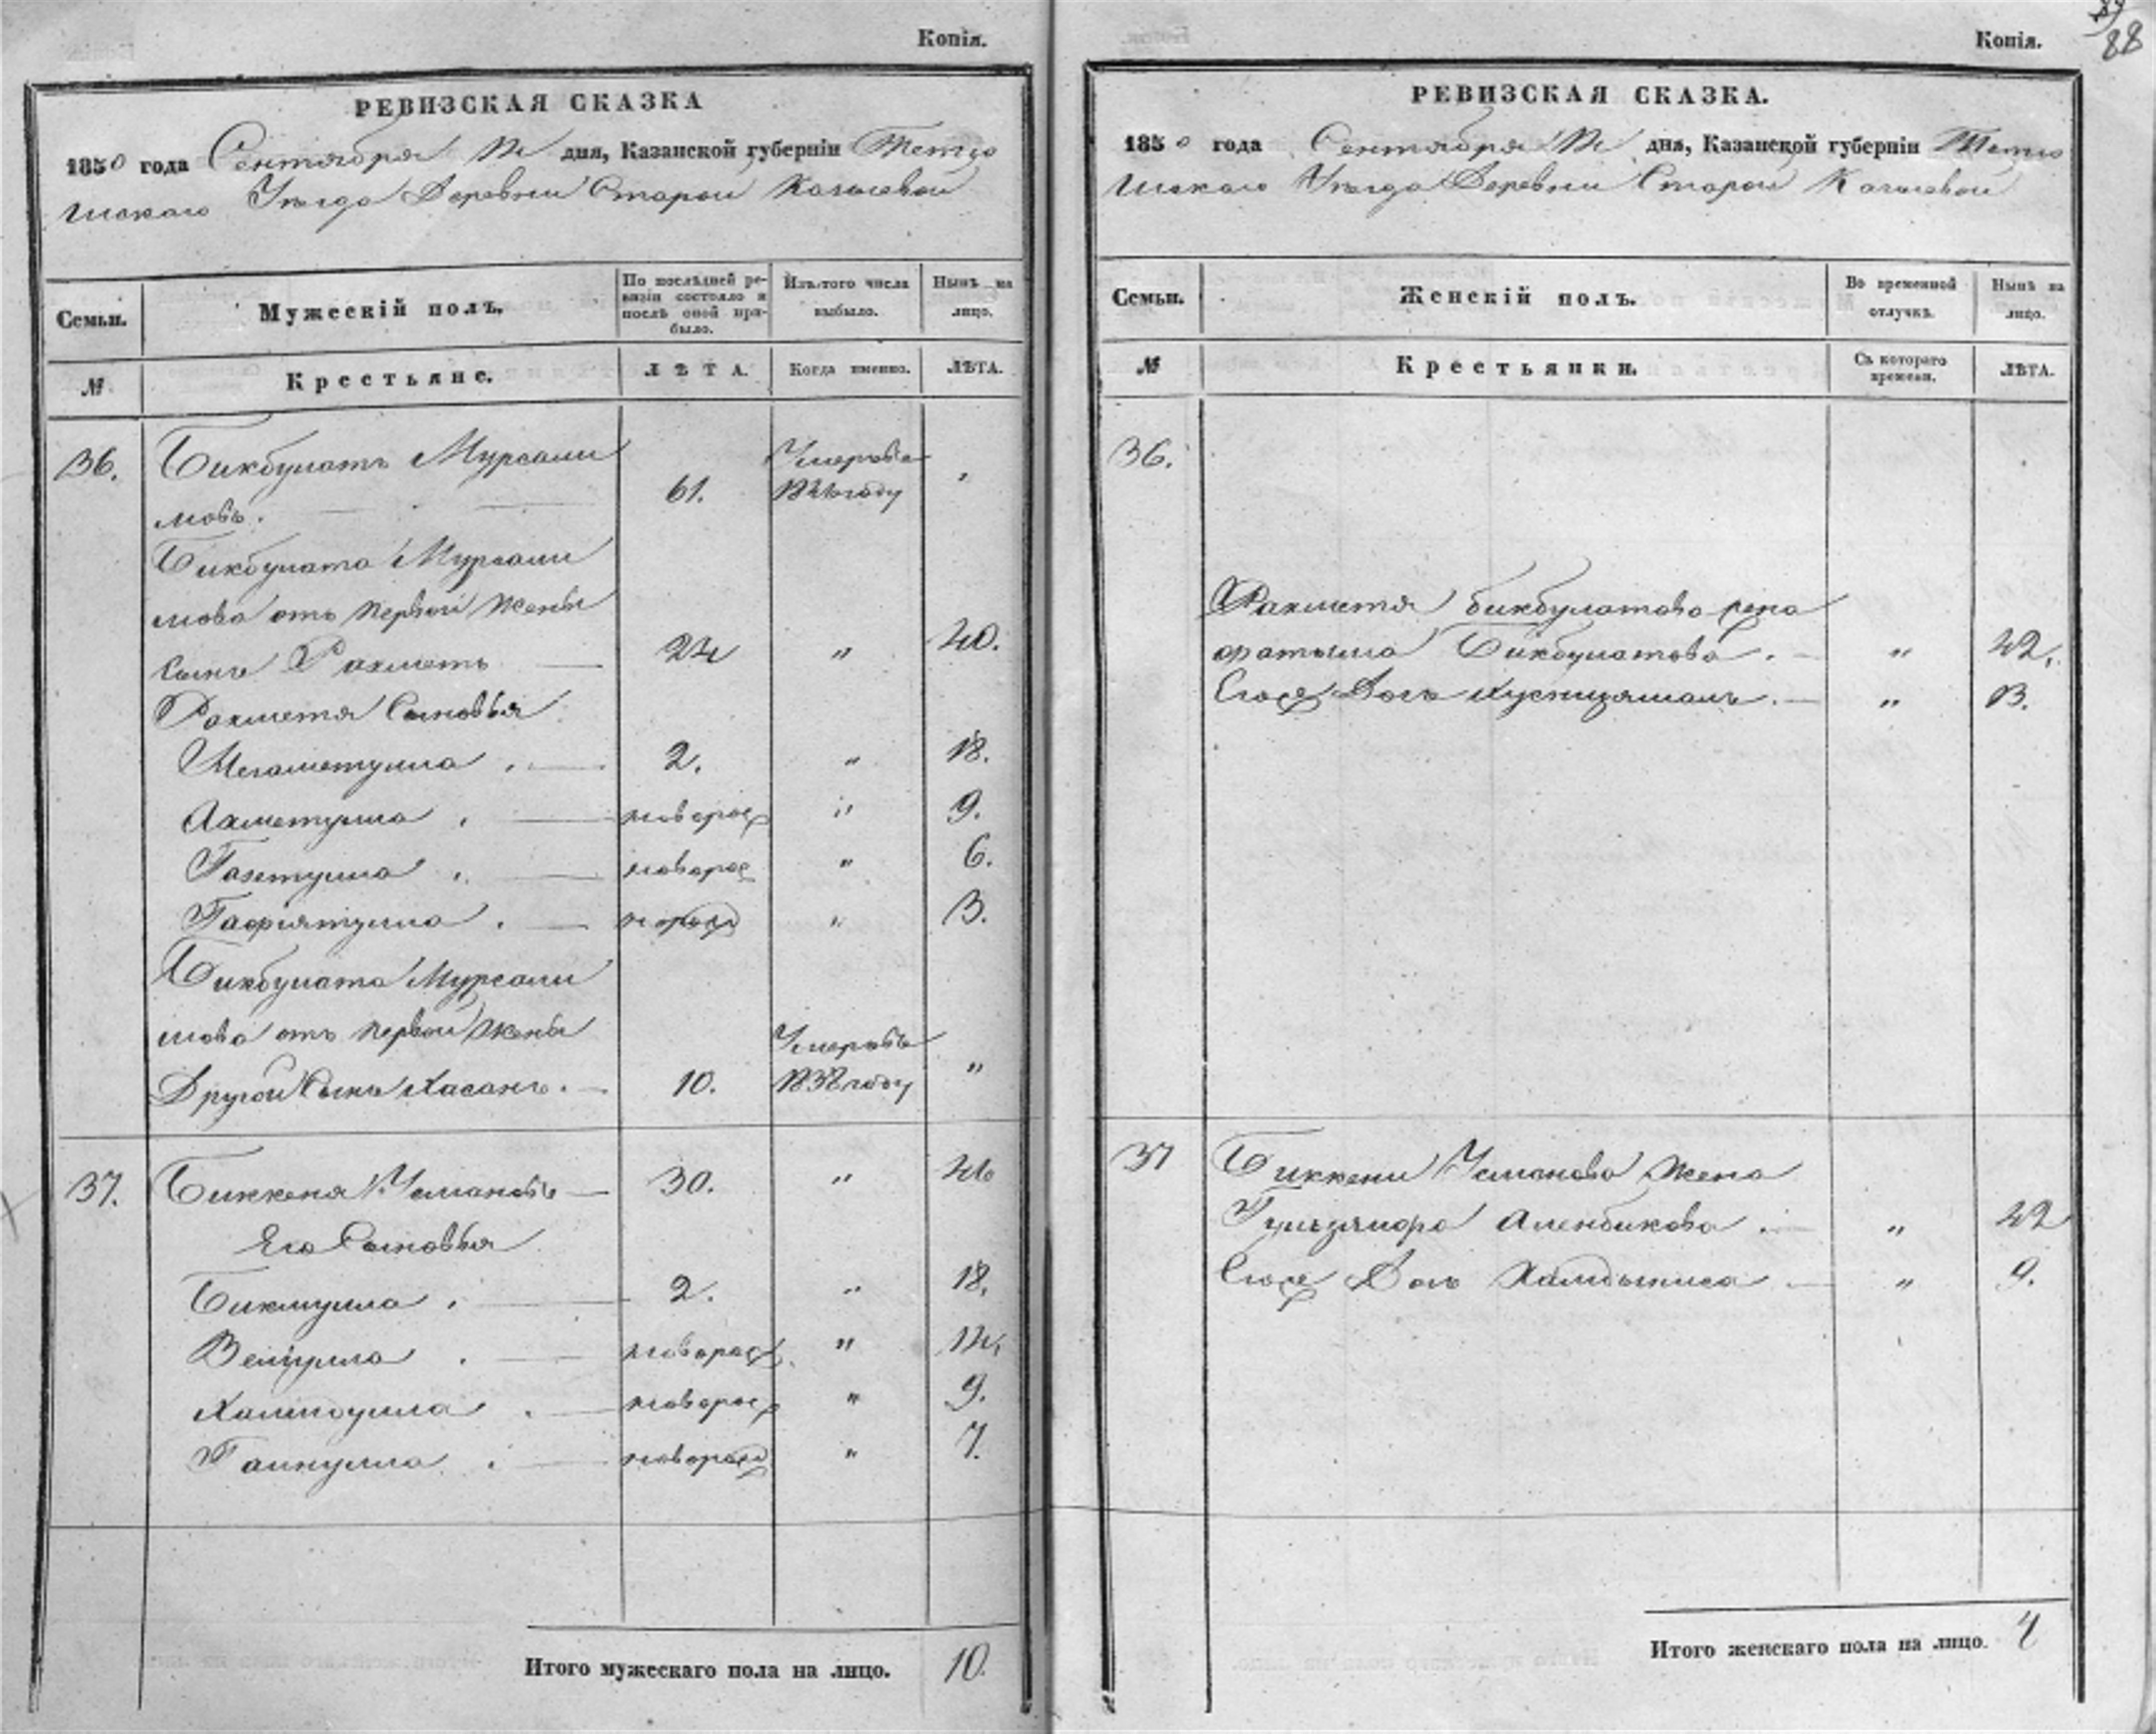 Копія.
РЕВИЗСКАЯ СКАЗКА
1850 года Сентября дня, Казанской губерніи Тетю
шскаго Уѣзда Деревни Старой Качаевой
Семьи.
Мужескій полъ.
По послѣдней ре-
визіи состояло и
послѣ оной при-
было.
Изъ того числа
выбыло.
Нынѣ на
лицо.
№
Крестьяне.
ЛѢТА.
Когда именно.
ЛѢТА.
36. Бикбулатъ Мурсали
мовъ. 61. Умеръ въ
году
Бикбулата Мурсали
мова отъ первой жены
сынъ Рахметъ 24 " 40.
Рахметя Сыновья
Мегаметулла . 2. " 18.
Ахметулла . новорож " 9.
Газетулла . новорож " 6.
Гафиятулла . " 3.
Бикбулата Мурсали
мова отъ первой жены
Другой Сынъ Хасанъ. 10. Умеръ въ
1838 году "
37. Биккеня Усмановъ 30. " 46
Его Сыновья
Бикмулла . 2. " 18.
Велиулла . новорож " 14.
Халитулла . новорож " 9.
Гайнулла . новорож " 7.
Итого мужескаго пола на лицо. 10.
88
Копія.
РЕВИЗСКАЯ СКАЗКА.
1850 года Сентября дня, Казанской губерніи Тетю
шскаго Уѣзда Деревни Старой Качаевой
Семьи.
Женскій полъ.
Во временной
отлучкѣ.
Нынѣ на
лицо.
№
Крестьянки.
Съ котораго
времени.
ЛѢТА.
36.
Рахметя бикбулатова жена
фатыма Бикбулатова . " 42.
Ея Дочь Хуснизямалъ . " 13.
37 Биккени Усманова жена
Гульзямора Аленбикова . " 42
Ея Дочь Хамдыниса . " 9.
Итого женскаго пола на лицо. 4